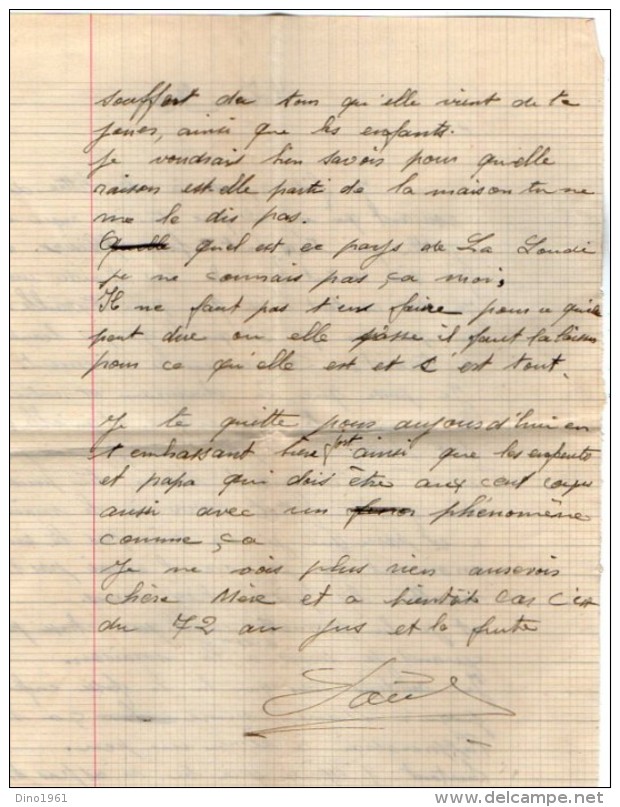 souffert du tour qu'elle vient de te
jouer, ainsi que les enfants.
je voudrais bien savoir pour qu'elle
raison est-elle parti de la maison tu ne
me le dis pas.
Quelle quel est ce pays de La Loude
je ne connais pas ça moi,
Il ne faut pas t'en faire pour ce qu'elle
peut dire ou elle passe il faut la laisser
pour ce qu'elle est et c'est tout.
Je te quitte pour aujourd'hui en
t embrassant bien fort ainsi que les enfants
et papa qui dois être aux cent coups
aussi avec un phénomène
comme ça
Je ne vois plus rien auresvois
chère Mère et a bientôt car c'est
du 72 au jus et la fuite
Dino1961
www.delcampe.net